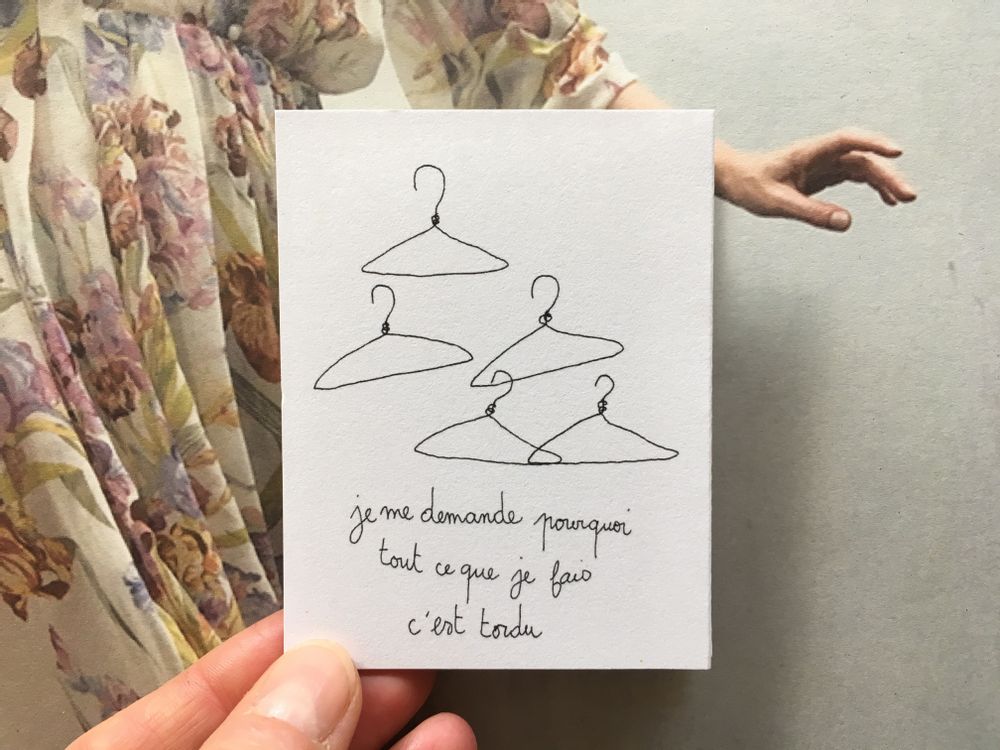 je me demande pourquoi
tout ce que je fais
c'est tordu